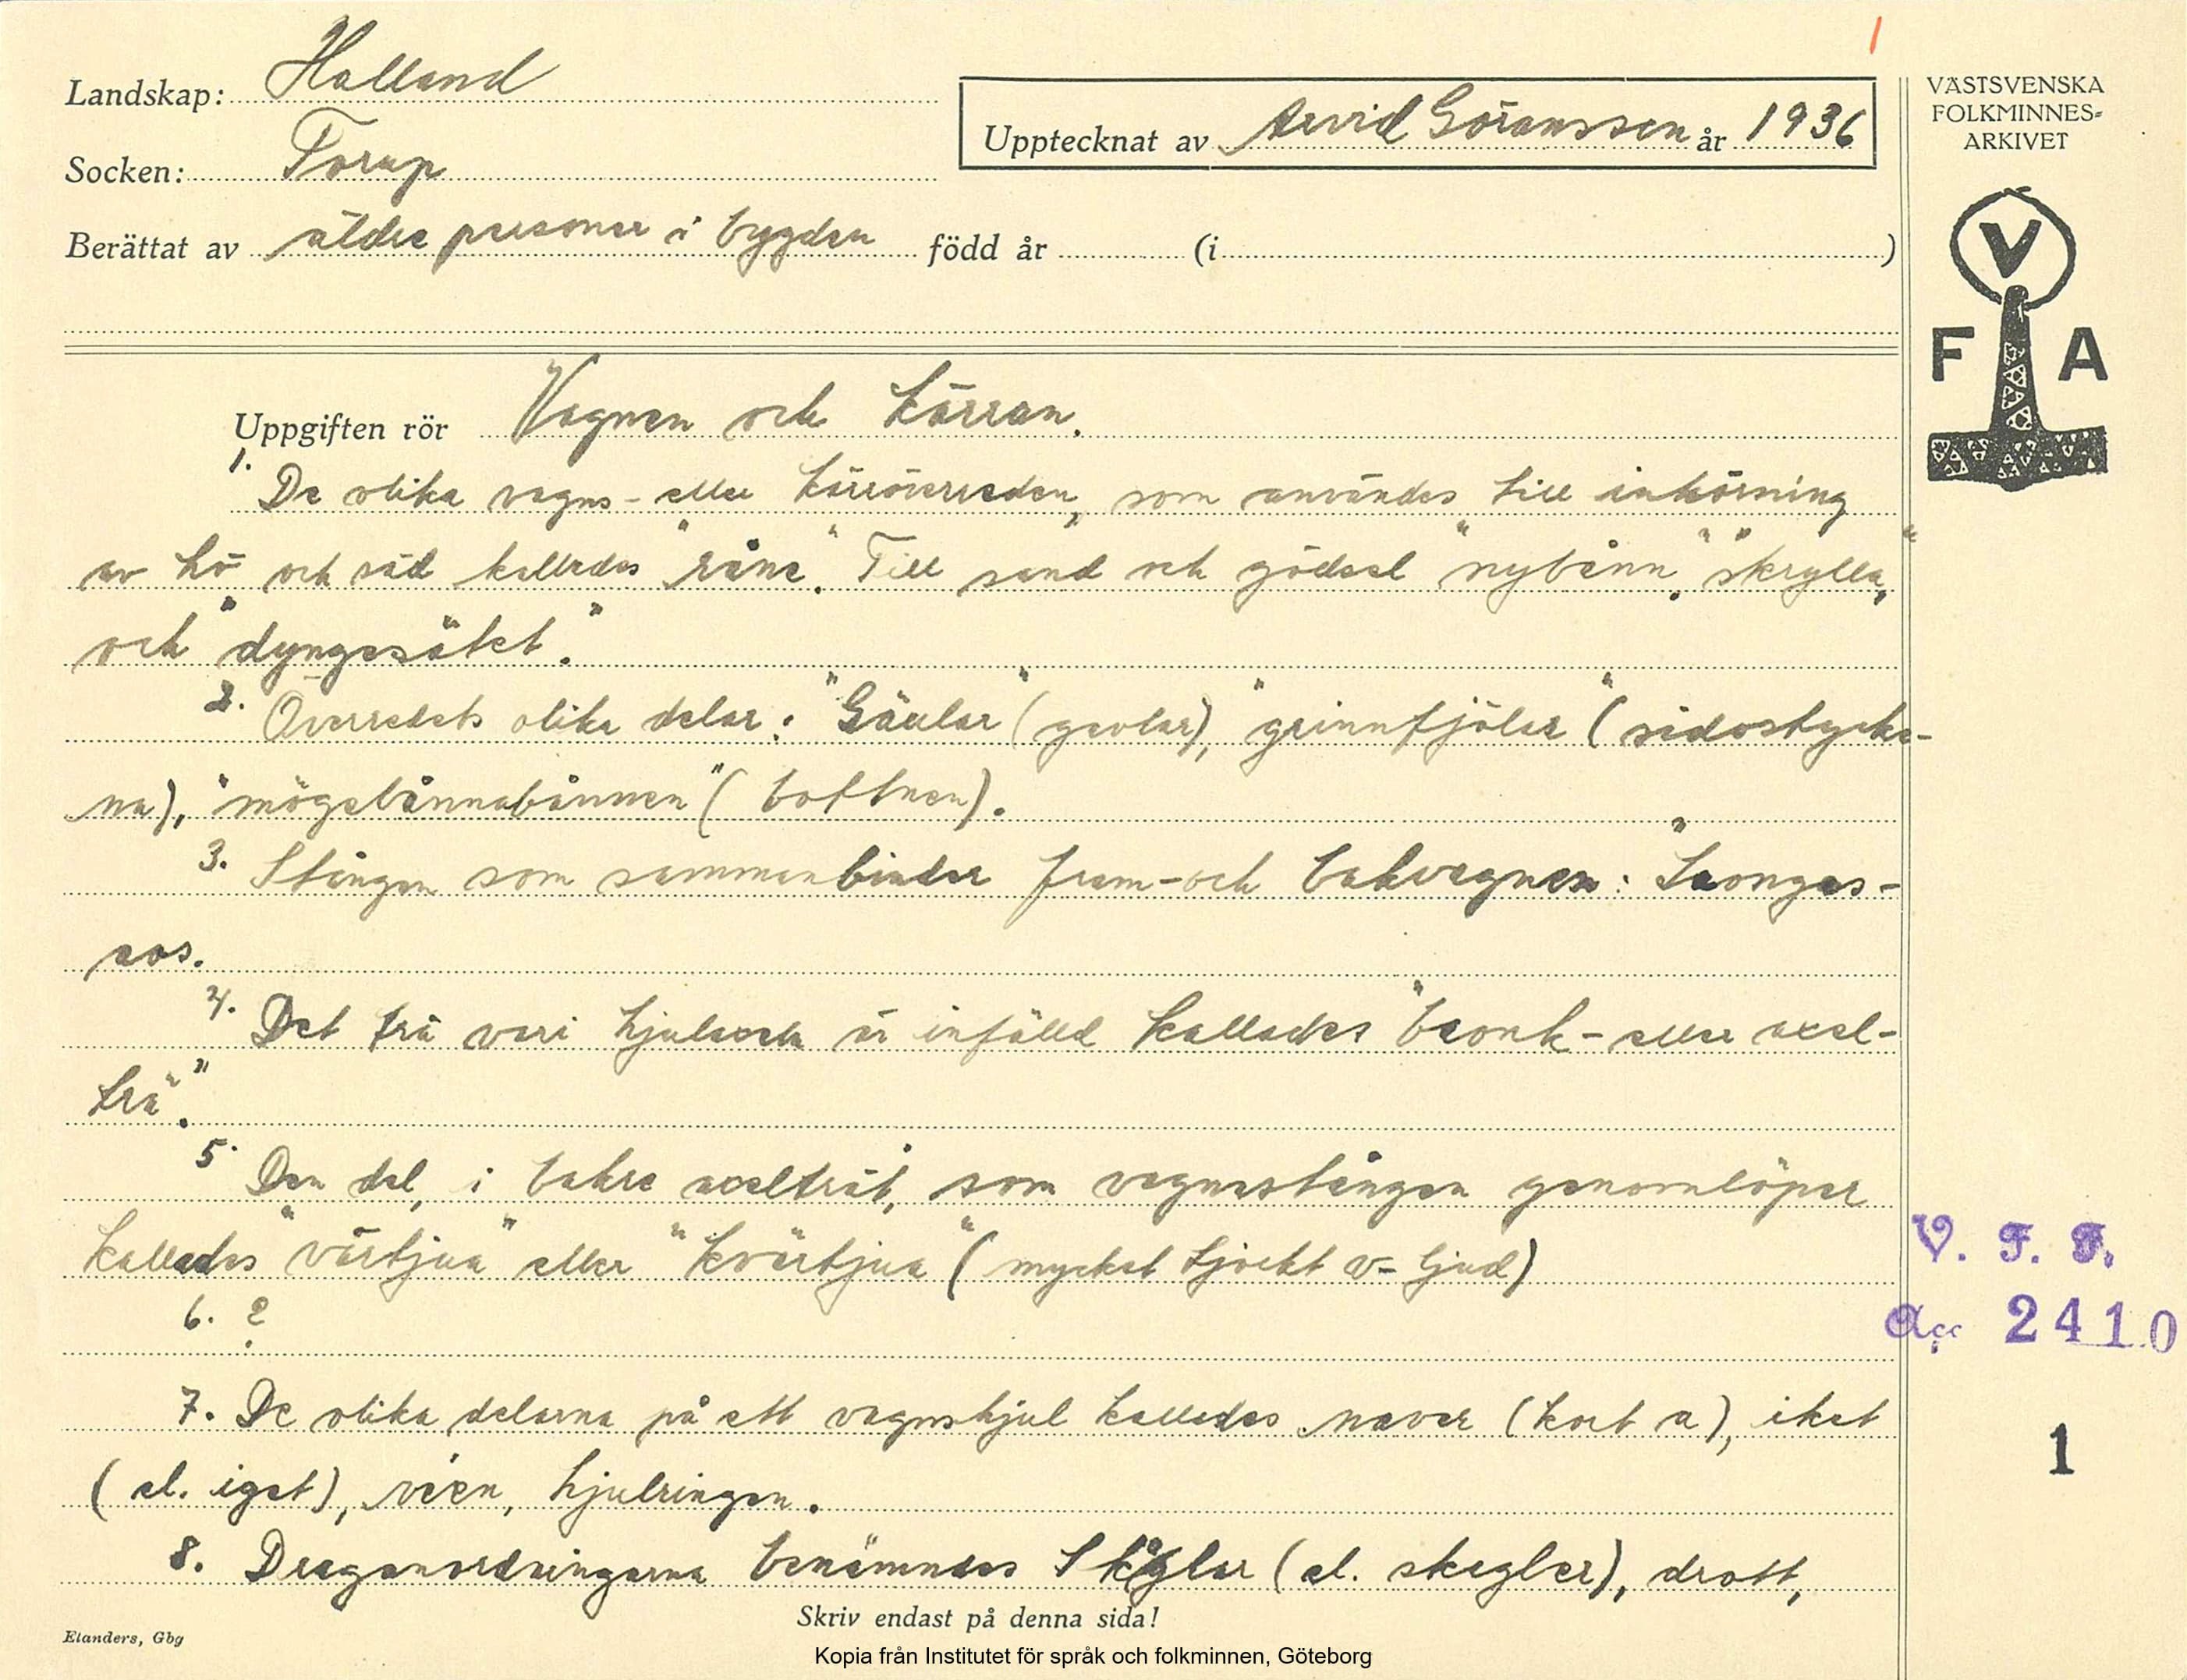 1
Landskap: Halland
Upptecknat av Arvid Göransson år 1936
Socken: Torup
Berättat av äldre personer i bygden född år (i )
VÄSTSVENSKA
FOLKMINNES-
ARKIVET
V
F A
Uppgiften rör Vagnen och kärran.
1. De olika vagns- eller kärröverreden, som användes till inkörning
av hö och säd kallades "räne". Till sand och gödsel "nybänn", "skrylla",
och "dyngesätet".
2. Överredets olika delar: "Gäular" (gavlar), "grinnfjölar" (sidostycke-
na), "mögabånnabånnen" (bottnen).
3. Stången som sammanbinder fram- och bakvagnen: "Laonges-
aos.
4. Det trä vari hjulaxeln är infälld kallades "baonk- eller axel-
trä".
5. Den del, i bakre axelträt, som vagnsstången genomlöper
kallades "värtjua" eller "kvärtjua" (mycket tjockt v- ljud)
6. ?
7. De olika delarna på ett vagnshjul kallades naver (kort a), iket
(el. iget), vien, hjulringen.
8. Draganordningarna benämndes Skåglar (el. skegler), drott,
V. F. F.
Acc 2410
1
Skriv endast på denna sida!
Elanders, Gbg
Kopia från Institutet för språk och folkminnen, Göteborg